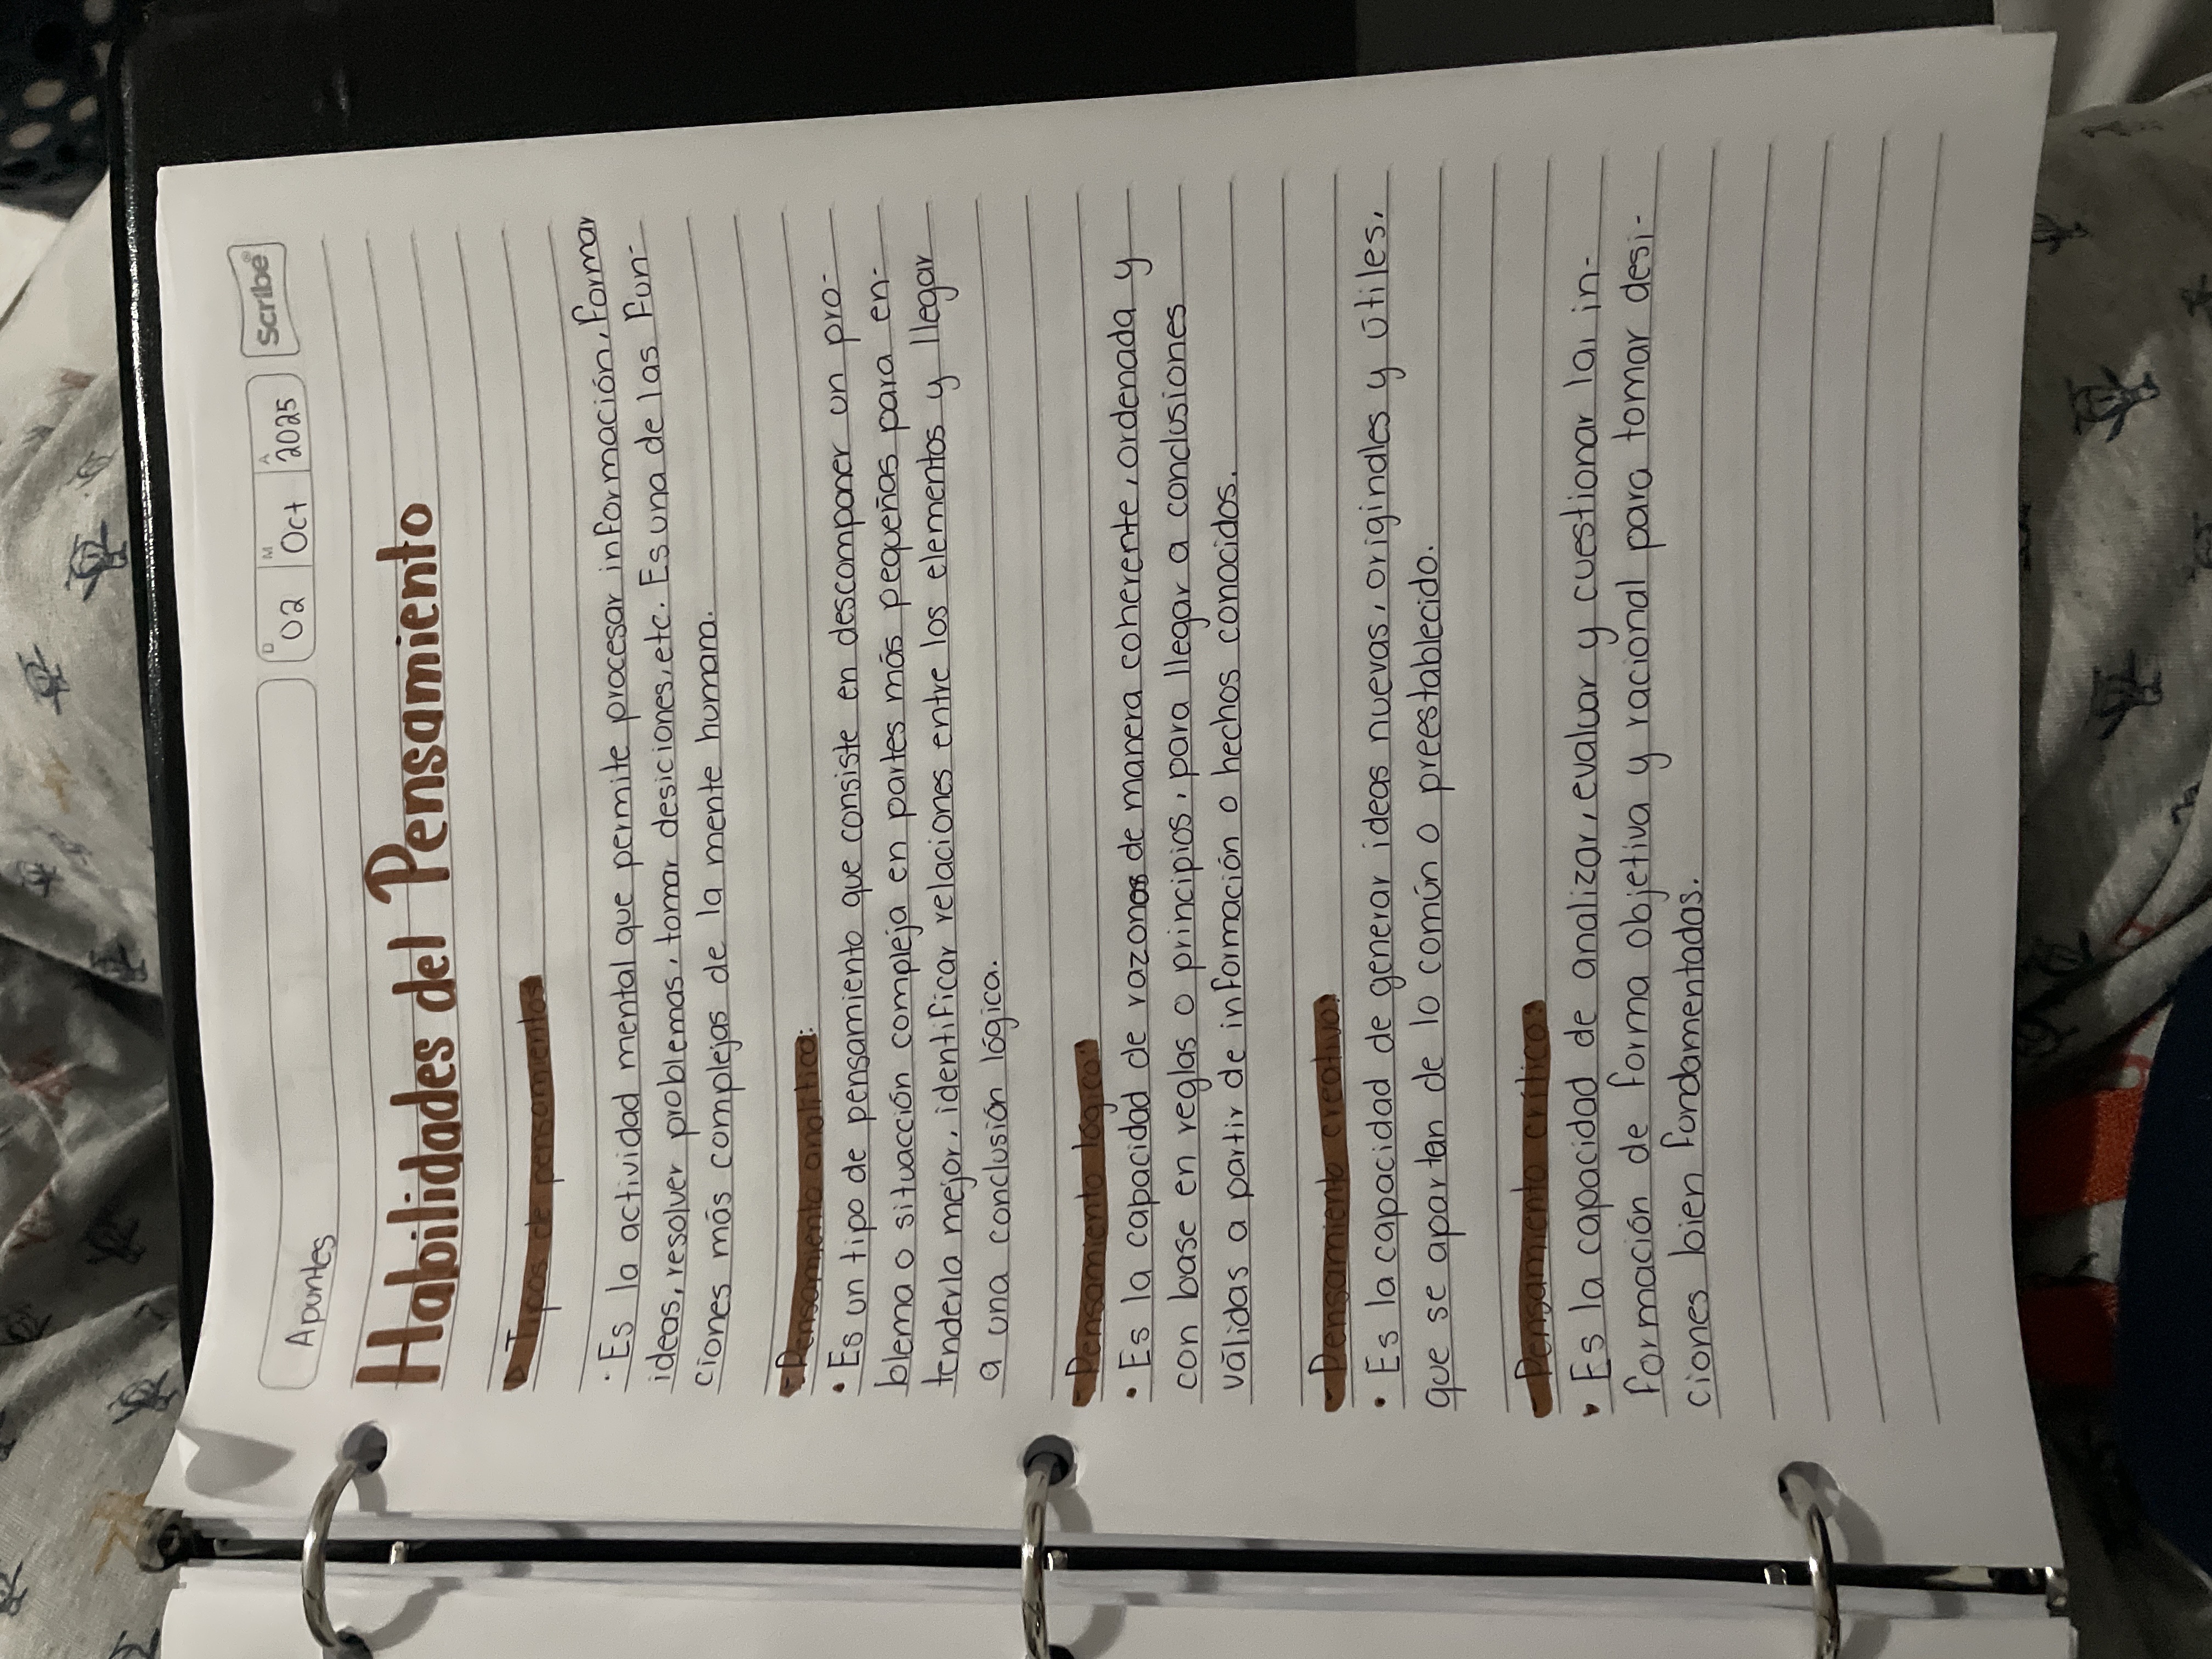 Apuntes
D 02 M Oct A 2025 Scribe®
Habilidades del Pensamiento
Tipos de pensamientos
· Es la actividad mental que permite procesar información, formar
ideas, resolver problemas, tomar desiciones, etc. Es una de las fun-
ciones más complejas de la mente humana.
- Pensamiento analítico:
• Es un tipo de pensamiento que consiste en descomponer un pro-
blema o situacción compleja en partes más pequeñas para en-
tenderla mejor, identificar relaciones entre los elementos y llegar
a una conclusión lógica.
- Pensamiento lógico:
• Es la capacidad de razonas de manera coherente, ordenada y
con base en reglas o principios, para llegar a conclusiones
válidas a partir de información o hechos conocidos.
- Pensamiento creativo:
• Es la capacidad de generar ideas nuevas, originales y útiles,
que se apartan de lo común o preestablecido.
- Pensamiento crítico:
• Es la capacidad de analizar, evaluar y cuestionar la in-
formación de forma objetiva y racional para tomar desi-
ciones bien fundamentadas.